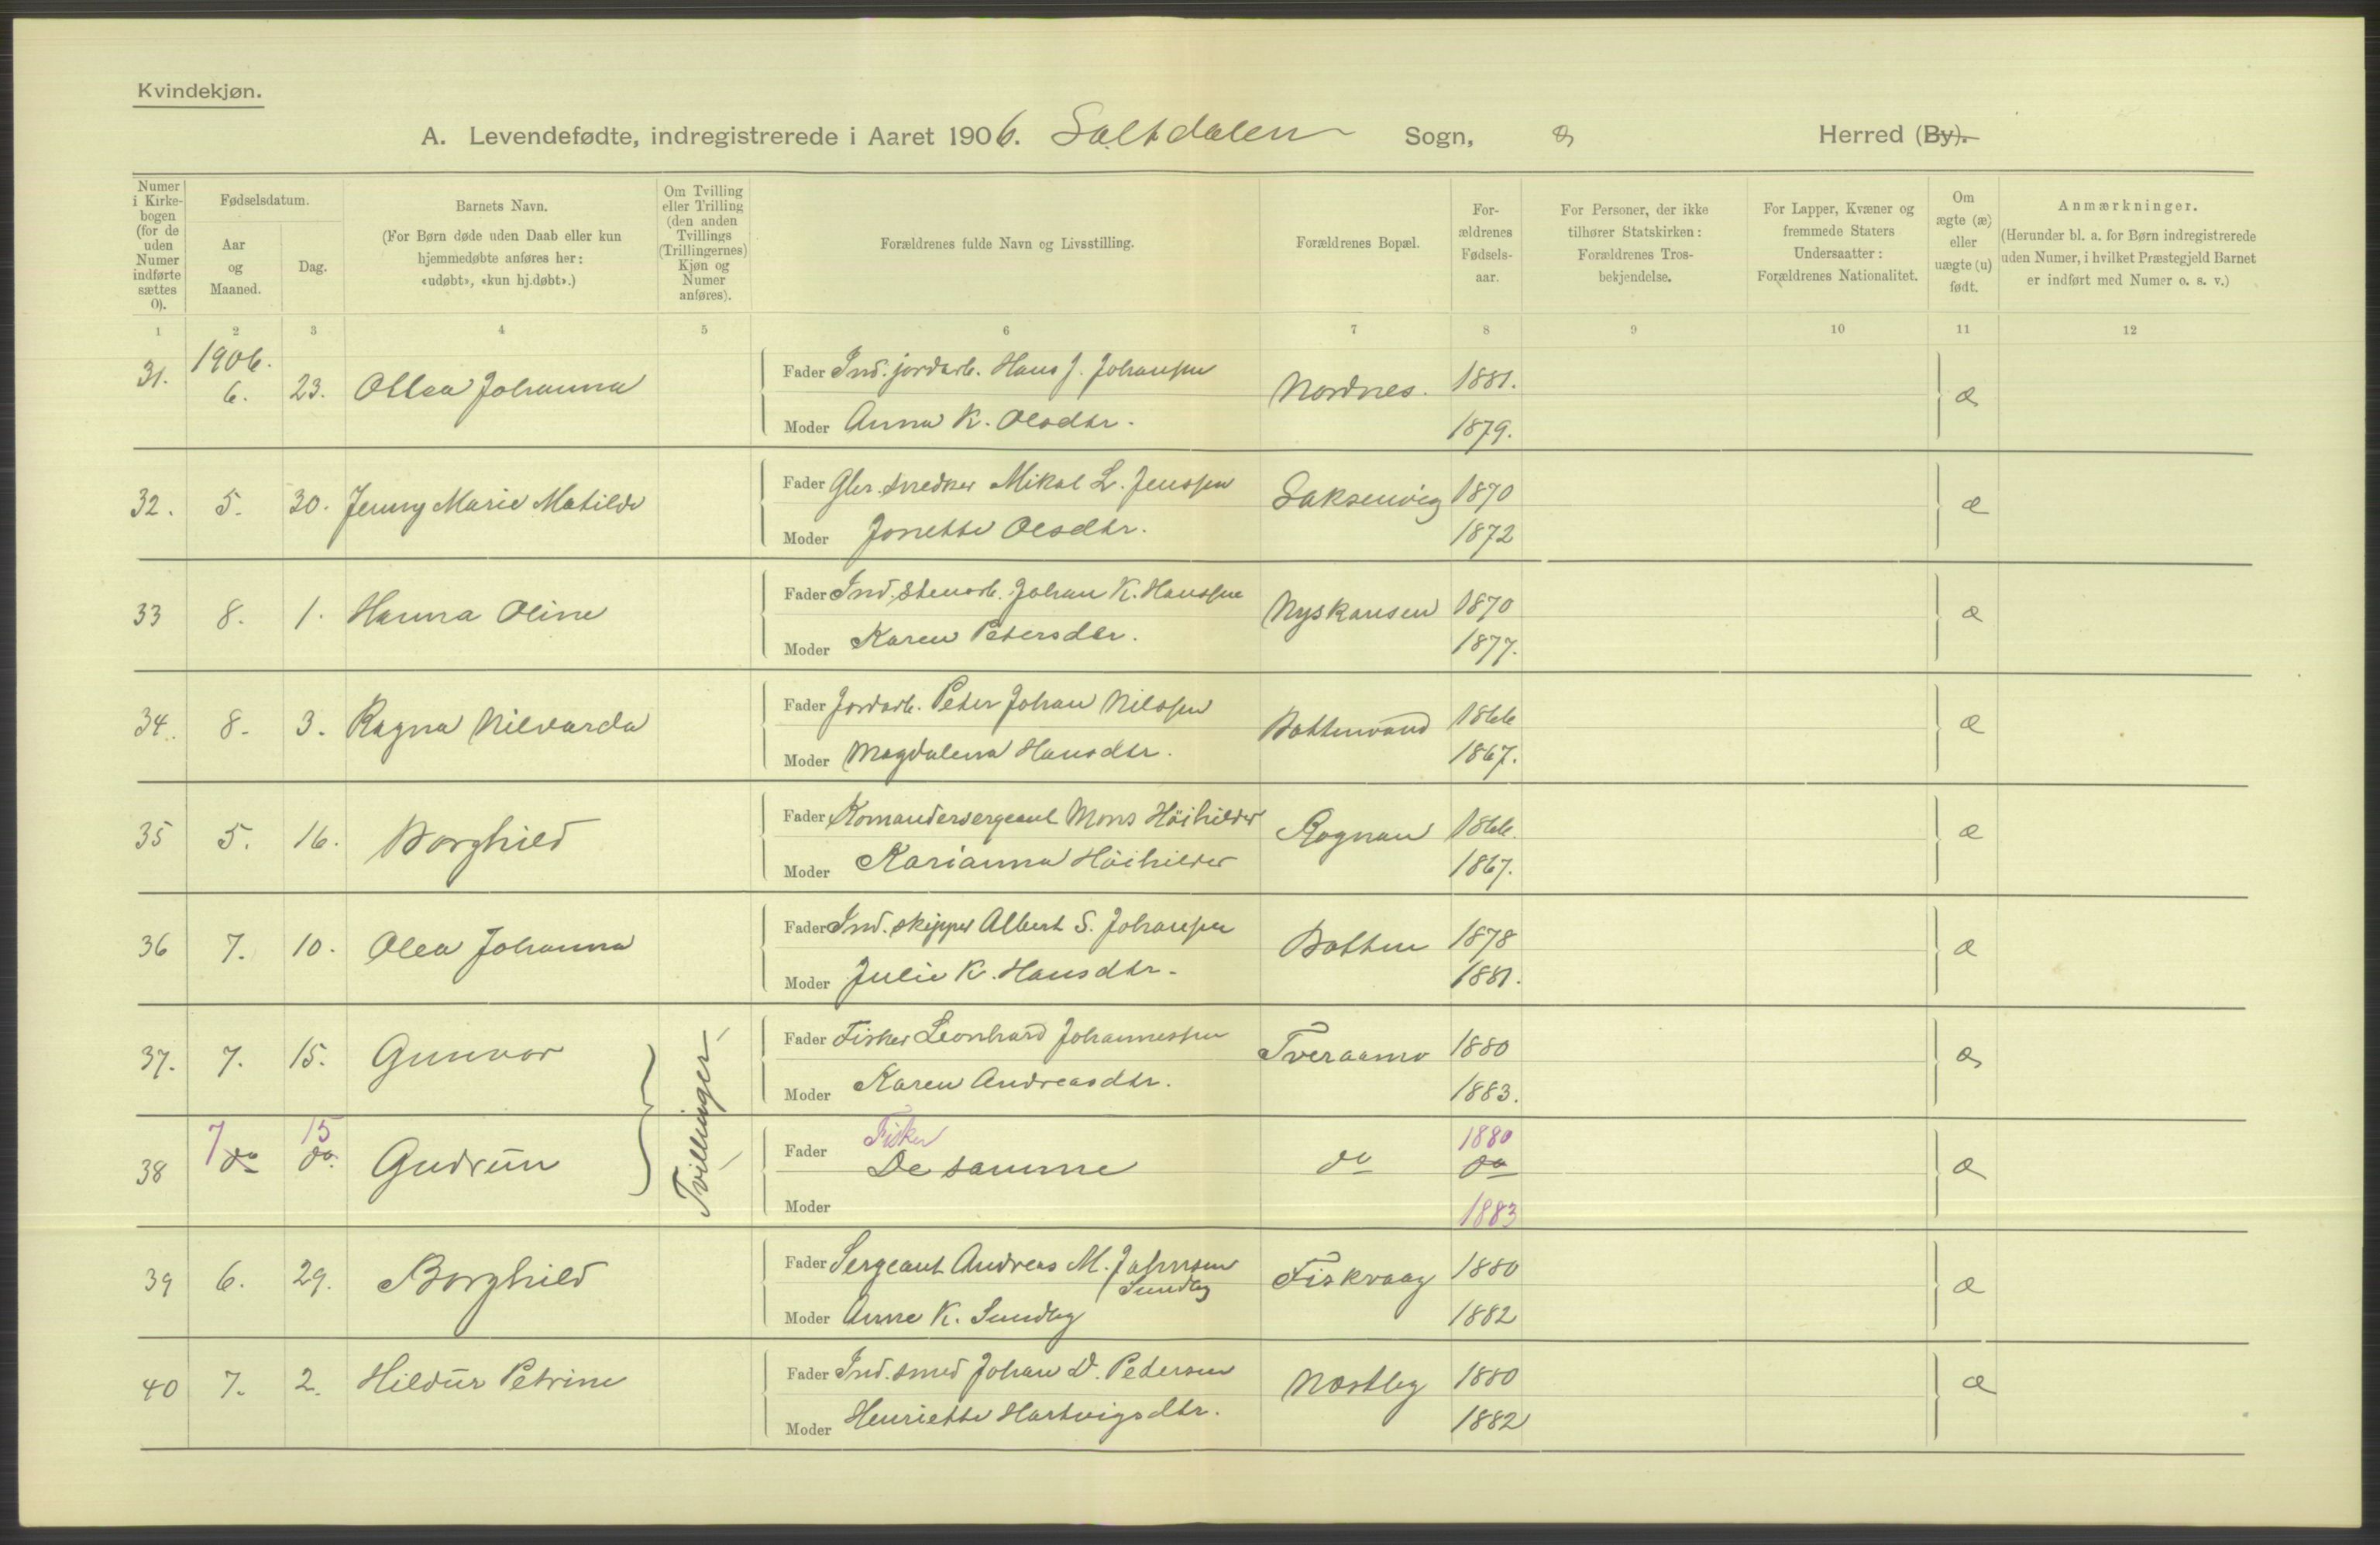 Kvindekjøn.
A. Levendefødte, indregistrerede i Aaret 1906. Saltdalen Sogn, Herred (By).
Numer i Kirkebogen (for de uden Numer indførte sættes 0).
Fødselsdatum.
Aar og Maaned.
Dag.
Barnets Navn.
(For Børn døde uden Daab eller kun hjemmedøbte anføres her: «udøbt», «kun hj.døbt».)
Om Tvilling eller Trilling (den anden Tvillings (Trillingernes) Kjøn og Numer anføres).
Forældrenes fulde Navn og Livsstilling.
Forældrenes Bopæl.
Forældrenes Fødselsaar.
For Personer, der ikke tilhører Statskirken: Forældrenes Trosbekjendelse.
For Lapper, Kvæner og fremmede Staters Undersaatter: Forældrenes Nationalitet.
Om ægte (æ) eller uægte (u) født.
Anmærkninger.
(Herunder bl. a. for Børn indregistrerede uden Numer, i hvilket Præstegjeld Barnet er indført med Numer o. s. v.)
1 2 3 4 5 6 7 8 9 10 11 12
1906.
31. 6. 23. Ottea Johanna Fader Ind. jordarb. Hans J. Johanssen Nordnes. 1881. æ
Moder Anna K. Olsdtr. 1879.
32. 5. 30. Jenny Marie Matilde Fader Gbr. snedker Mikal L. Jenssen Saksenvig 1870 æ
Moder Jonette Olsdtr. 1872
33 8. 1. Hanna Oline Fader Ind. stenarb. Johan K. Hanssen Nyskansen 1870 æ
Moder Karen Petersdtr. 1877.
34. 8. 3. Ragna Nilvarda Fader Jordarb. Peter Johan Nilssen Bottenvand 1866 æ
Moder Magdalena Hansdtr. 1867.
35 5. 16. Borghild Fader Komandersergeant Mons Höihilder Rognan 1866. æ
Moder Karianna Höihilder 1867.
36 7. 10. Olea Johanna Fader Ind. skipper Albert S. Johanssen Botten 1878 æ
Moder Julie K. Hansdtr. 1881.
37. 7. 15. Gunvor Tvillinger Fader Fisker Leonhard Johannessen Tveraamo 1880 æ
Moder Karen Andreasdtr. 1883.
7 15 Fisker 1880
38 do do. Gudrun Fader De samme do do æ
Moder 1883
39 6. 29. Borghild Fader Sergeant Andreas M. Jahnsen Fiskvaag 1880 æ
Sundby
Moder Anne K. Sundby 1882
40 7. 2. Hildur Petrine Fader Ind. smed Johan D. Pedersen Næstby 1880 æ
Moder Henriette Hartvigsdtr. 1882